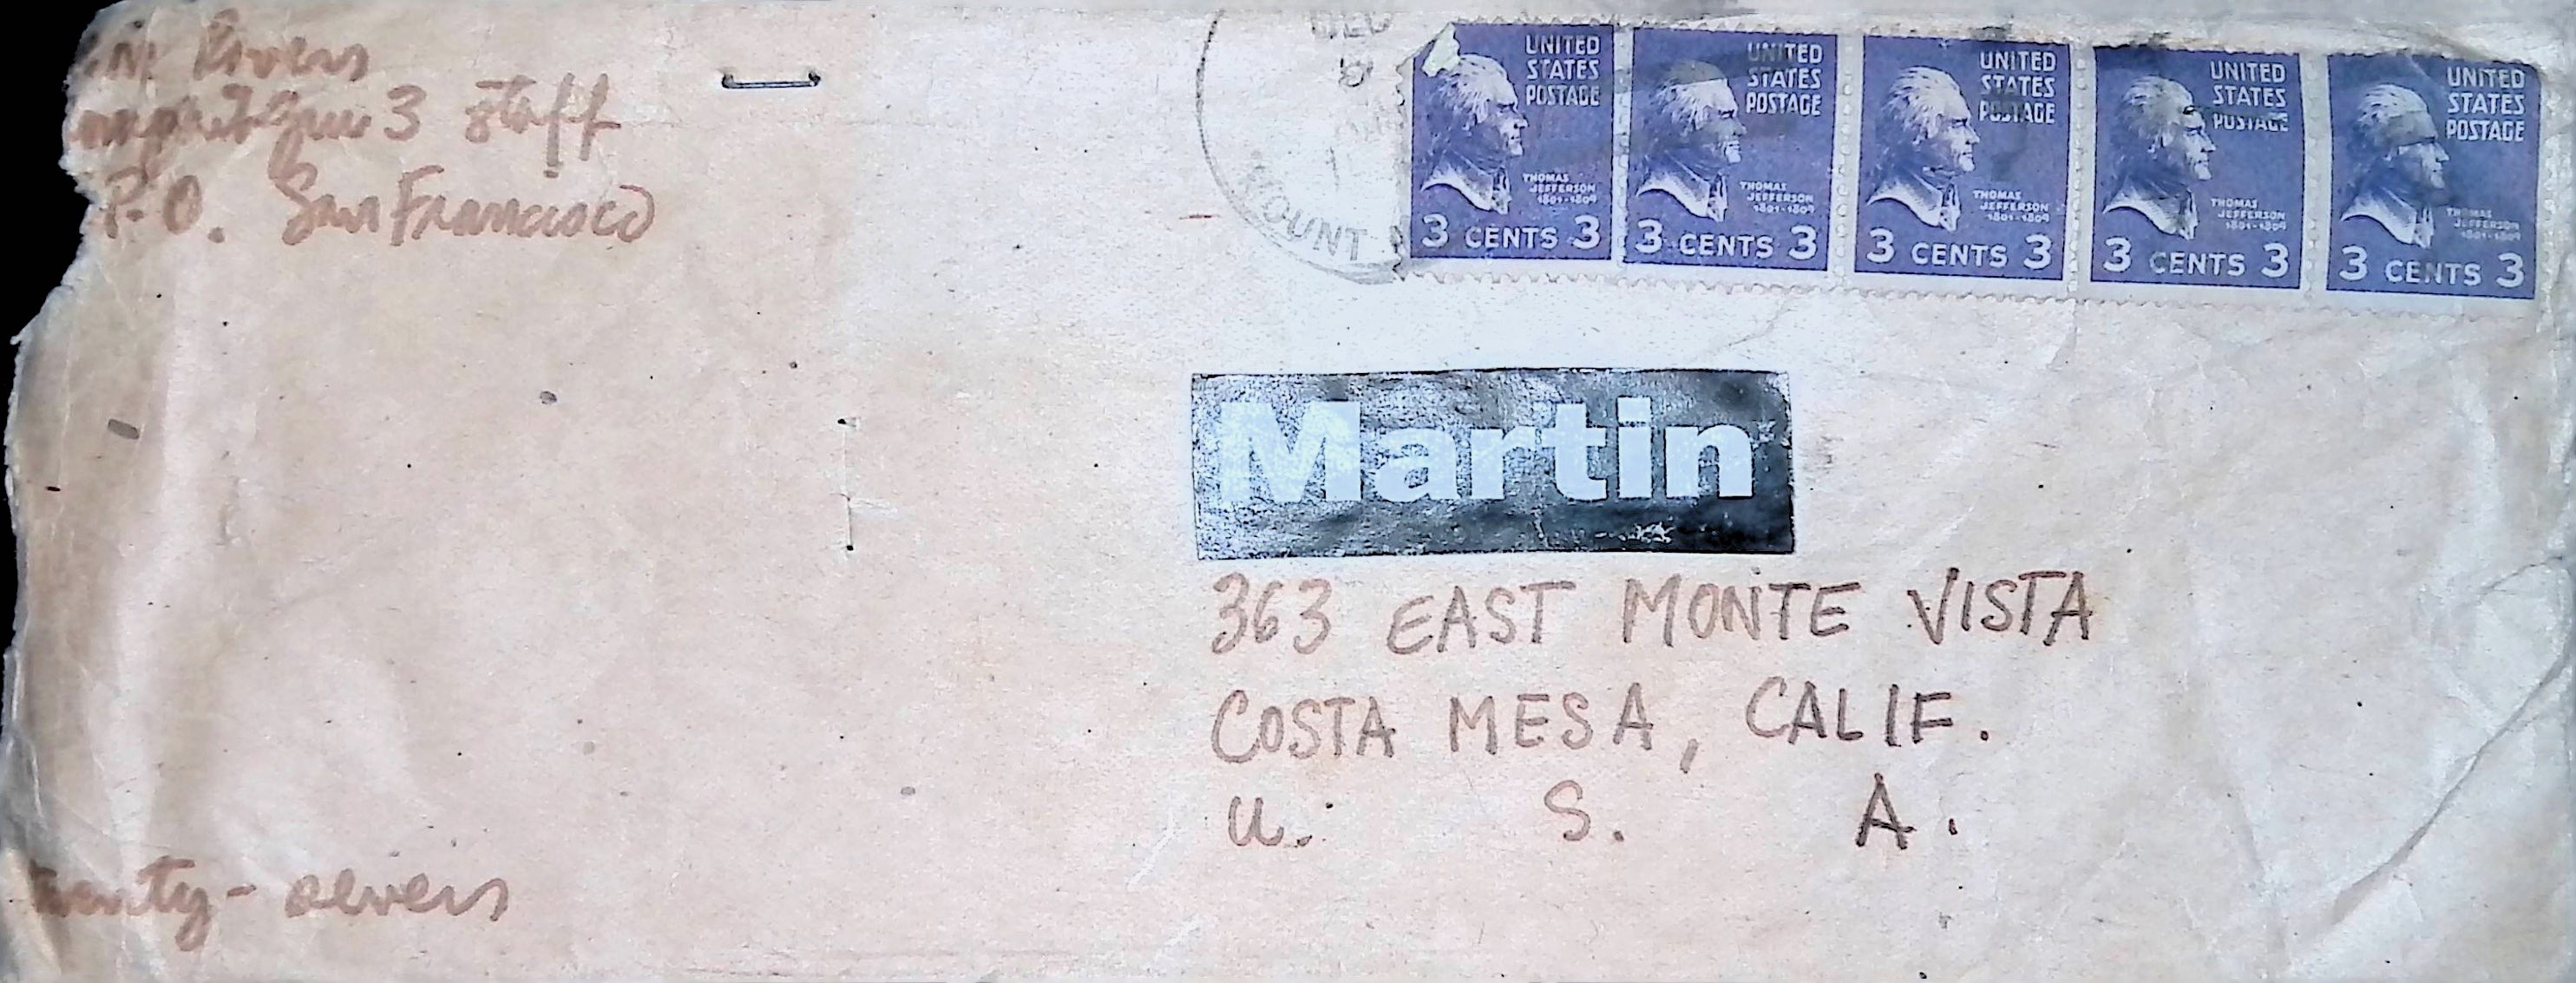 Rivers
3 staff
P.O. San Francisco
DEC
8
MOUNT
UNITED STATES POSTAGE
THOMAS JEFFERSON 1801-1809
3 CENTS 3
UNITED STATES POSTAGE
THOMAS JEFFERSON 1801-1809
3 CENTS 3
UNITED STATES POSTAGE
THOMAS JEFFERSON 1801-1809
3 CENTS 3
UNITED STATES POSTAGE
THOMAS JEFFERSON 1801-1809
3 CENTS 3
UNITED STATES POSTAGE
THOMAS JEFFERSON 1801-1809
3 CENTS 3
Martin
363 EAST MONTE VISTA
COSTA MESA, CALIF.
U. S. A.
twenty-sevens